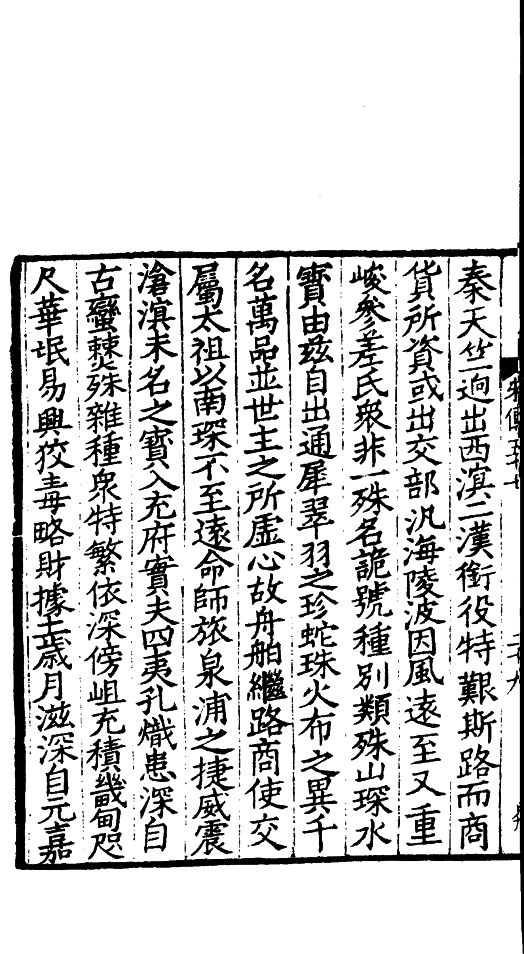 秦天竺迥出西溟二漢銜役特艱斯路而商
貨所資或出交部汎海陵波因風遠至又重
峻參差氏衆非一殊名詭號種別類殊山琛水
寶由茲自出通犀翠羽之珍蛇珠火布之異千
名萬品並世主之所虚心故舟舶繼路商使交
屬太祖以南琛不至遠命師旅泉浦之捷威震
滄溟未名之寶入充府實夫四夷孔熾患深自
古蠻僰殊雜種衆特繁依深傍岨充積畿甸咫
尺華氓易興狡毒略財據土歲月滋深自元嘉